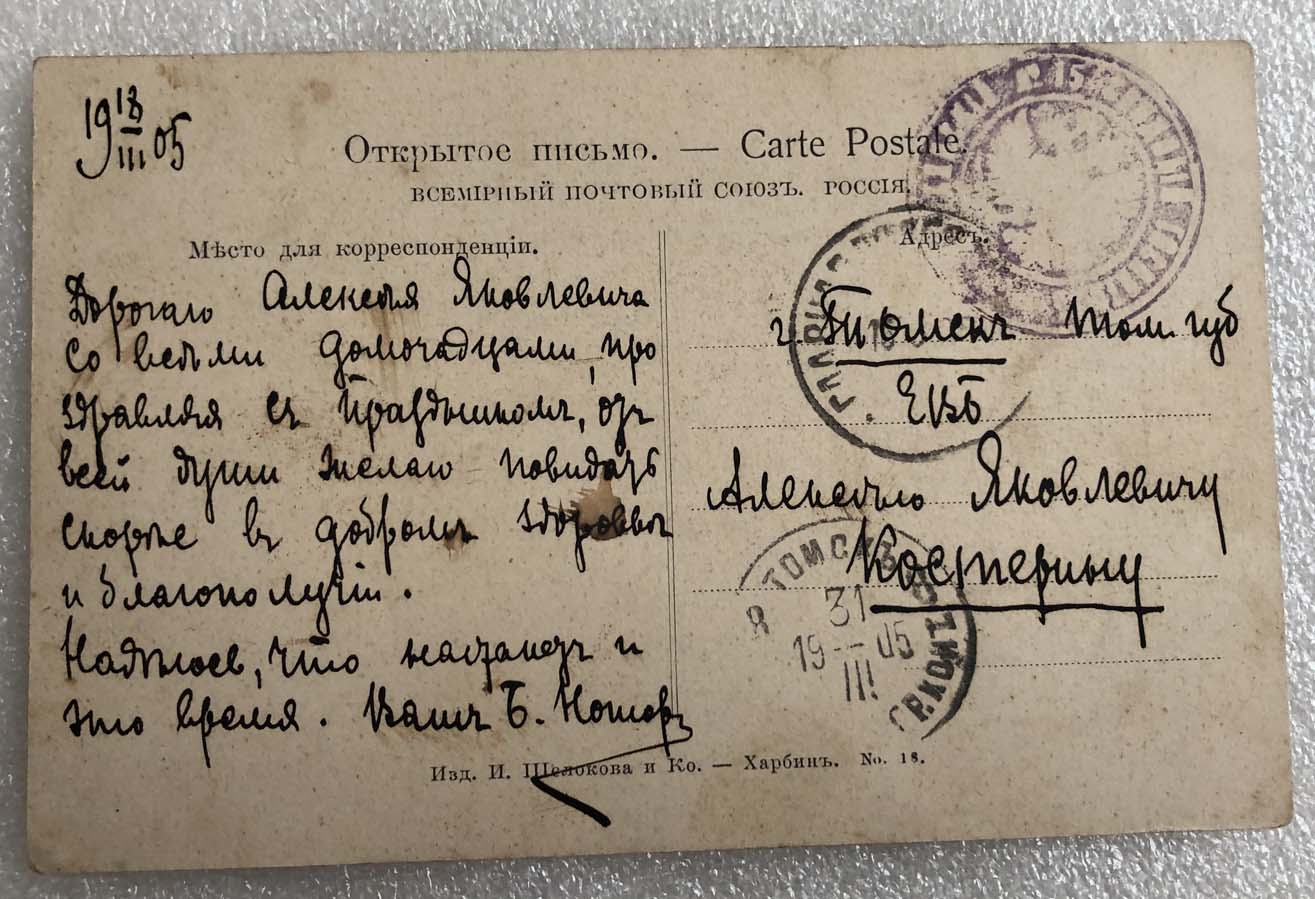 19 18/III 05
Открытое письмо. — Carte Postale.
ВСЕМІРНЫЙ ПОЧТОВЫЙ СОЮЗЪ. РОССІЯ.
Мѣсто для корреспонденціи.
Адресъ.
Дорогаго Алексѣя Яковлевича
со всѣми домочадцами, про
здравляя съ Праздникомъ, отъ
всей души желаю повидать
скорѣе въ добромъ здоровьѣ
и благополучіи.
Надѣюсь, что настанетъ и
это время. Вашъ Б.
г. Тюмень Том. губ
Алексѣю Яковлевичу
Костерину
ТОМСКЪ
31
19 — 05
III
Изд. И. Щелокова и Ко. — Харбинъ. No. 18.